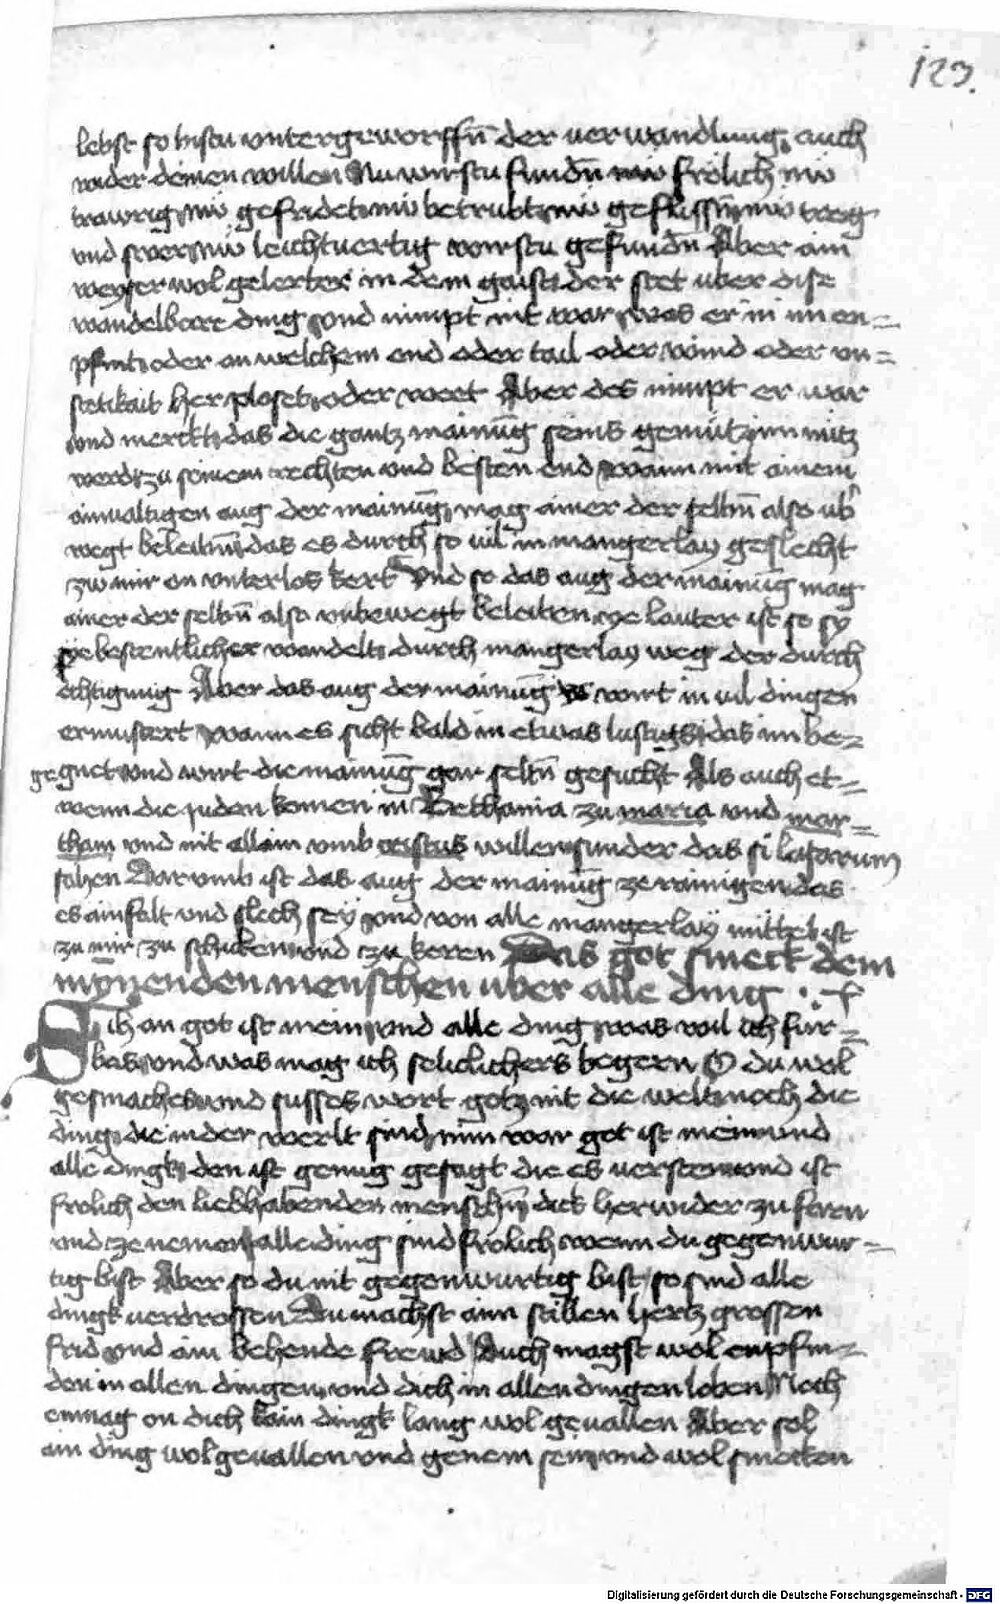 123.
lebst so bistu untergeworffn̄ der uerwandlung auch
wider deinen willen Nu wirstu fundn̄ nw frölich nw
trawrig nw gefridet nw betrubt nw geflissn̄ nw treg
und swer nw leichtuertig wirstu gefundn̄ Aber ain
weyser wol gelerter in dem gaist der stet uber dise
wandelbare ding vnd nimpt nit war was er in im en=
pfint oder an welchem end oder tail oder wind oder vn=
stetikait her ploset oder weet Aber des nimpt er war
vnd merckt das die gantz mainūg seins gemütz im nütz
werd zu seinem rechten vnd besten end wann mit ainem
ainualtigen aug der mainūg mag ainer der selbn̄ also ub
wegt beleibn̄ das es durch so uil in mangerlay geslecht
zw mir on vnterlos kert Vnd so das aug der mainūg mag
ainer der selbn̄ also vnbewegt beleiben ye lauter ist so sy
ye bestentlicher wandelt durch mangerlay weg der durch
echtigung Aber das aug der mainūg wirt in uil dingen
ermustert wann es sicht bald in etwas lustigs das im be=
gegnet vnd wirt die mainūg gar seltn̄ gesucht Als auch et=
wenn die juden komen in Bethania zu maria vnd mar=
tham vnd nit allain vmb cristus willen sunder das si lasarum
sahen Darvmb ist das aug der mainūg ze rainigen das
es ainfalt vnd slech sey vnd von alle mangerlay mittel ist
zu mir zu schicken vnd zu keren Das got smeck dem
mynenden menschen uber alle ding
Sih an got ist mein vnd alle ding was wil ich für=
bas vnd was mag ich seliclichers begern O du wol
gesmaches vnd susses wort gotz nit die welt noch die
ding die in der werlt sind nim war got ist mein vnd
alle dingk den ist genug gesagt die es versten vnd ist
frolich den liebhabenden menschn̄ dick herwider zu fern
vnd ze nemen alle ding sind frölich wenn du gegenwur=
tig bist Aber so du nit gegenwurtig bist so sind alle
dingk uerdrossen Du machst ain stillen hertz grossen
frid vnd ain behende frewd Auch magst wol enpfin=
den in allen dingen vnd dich in allen dingen loben Noch
enmag on dich kain dingk lang wol geuallen Aber sol
ain ding wolgeuallen vnd genem sein vnd wol smecken
Digitalisierung gefördert durch die Deutsche Forschungsgemeinschaft - DFG